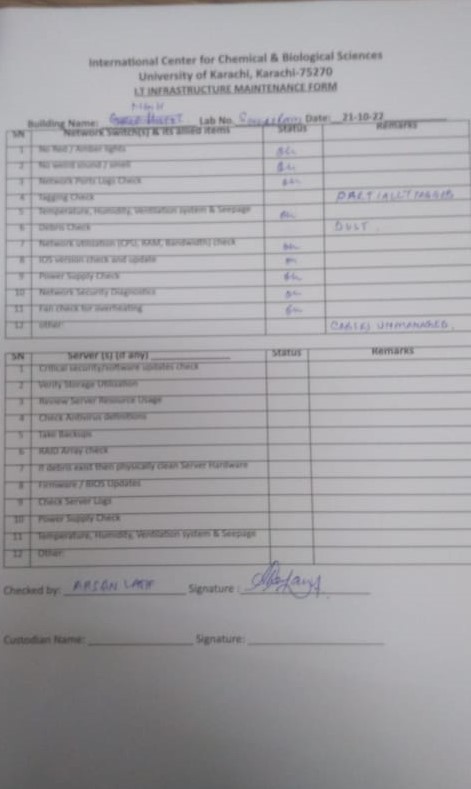 International Center for Chemical & Biological Sciences
University of Karachi, Karachi-75270
I.T INFRASTRUCTURE MAINTENANCE FORM
Building Name: Lab No. Date: 21-10-22
SN Network Switch(s) & its allied items Status Remarks
1 No Red / Amber lights
2 No weird sound / smell
3 Network Ports Logs Check
4 Tagging Check PARTIALLY TAGGED
5 Temperature, Humidity, Ventilation system & Seepage
6 Debris Check DUST
7 Network utilization (CPU, RAM, Bandwidth) check
8 IOS version check and update
9 Power Supply Check
10 Network Security Diagnostics
11 Fan check for overheating
12 other: UNMANAGED
SN Server (s) (if any) Status Remarks
1 Critical security/software updates check
2 Verify Storage Utilization
3 Review Server Resource Usage
4 Check Antivirus definitions
5 Take Backups
6 RAID Array check
7 If debris exist then physically clean Server Hardware
8 Firmware / BIOS Updates
9 Check Server Logs
10 Power Supply Check
11 Temperature, Humidity, Ventilation system & Seepage
12 Other:
Checked by: Signature :
Custodian Name: Signature: